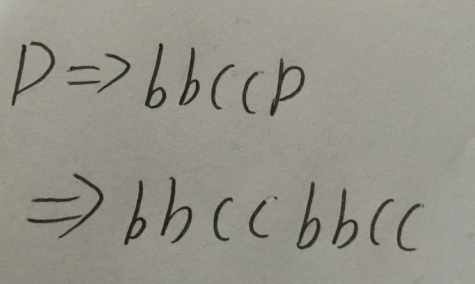 D => bbccD
=> bbccbbcc